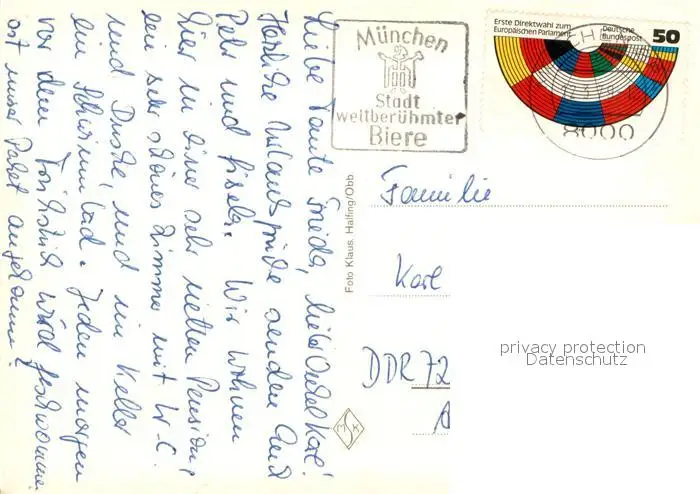 Liebe Tante Frieda, lieber Onkel Karl!
Herzliche Urlaubsgrüße senden Euch
Petr und Gisela. Wir wohnen
hier in einer sehr netten Pension,
ein sehr schönes Zimmer mit W.C.
und Dusche, und im Keller
ein Schwimmbad. Jeden morgen
vor dem Frühstück wird geschwommen.
ist unser Paket angekommen?
Foto Klaus, Halfing/Obb.
MSK
München
Stadt
weltberühmter
Biere
Erste Direktwahl zum
Europäischen Parlament
Deutsche
Bundespost
50
8000
Familie
Karl
DDR 72
A
privacy protection
Datenschutz